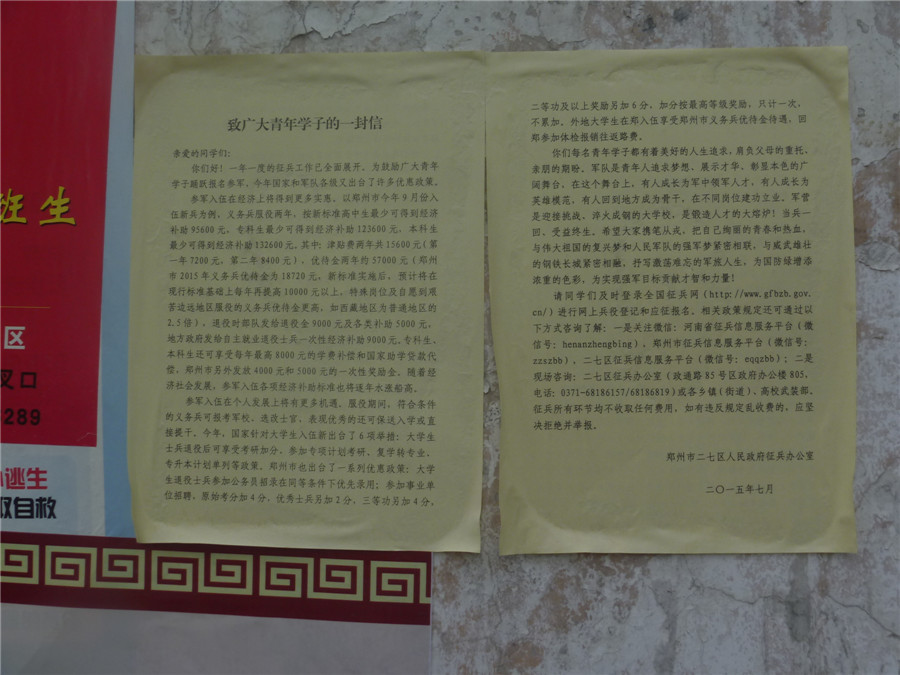 班生
区
叉口
289
小逃生
自救
致广大青年学子的一封信
亲爱的同学们：
你们好！一年一度的征兵工作已全面展开。为鼓励广大青年
学子踊跃报名参军，今年国家和军队各级又出台了许多优惠政策。
参军入伍在经济上将得到更多实惠。以郑州市今年9月份入
伍新兵为例，义务兵服役两年，按新标准高中生最少可得到经济
补助95600元，专科生最少可得到经济补助123600元，本科生
最少可得到经济补助132600元。其中：津贴费两年共15600元（第
一年7200元，第二年8400元），优待金两年约57000元（郑州
市2015年义务兵优待金为18720元，新标准实施后，预计将在
现行标准基础上每年再提高10000元以上，特殊岗位及自愿到艰
苦边远地区服役的义务兵优待金更高，如西藏地区为普通地区的
2.5倍），退役时部队发给退役金9000元及各类补助5000元，
地方政府发给自主就业退役士兵一次性经济补助9000元，专科生、
本科生还可享受每年最高8000元的学费补偿和国家助学贷款代
偿，郑州市另外发放4000元和5000元的一次性奖励金。随着经
济社会发展，参军入伍各项经济补助标准也将逐年水涨船高。
参军入伍在个人发展上将有更多机遇。服役期间，符合条件
的义务兵可报考军校、选改士官，表现优秀的还可保送入学或直
接提干。今年，国家针对大学生入伍新出台了6项举措：大学生
士兵退役后可享受考研加分、参加专项计划考研、复学转专业、
专升本计划单列等政策。郑州市也出台了一系列优惠政策：大学
生退役士兵参加公务员招录在同等条件下优先录用；参加事业单
位招聘，原始考分加4分，优秀士兵另加2分，三等功另加4分，
二等功及以上奖励另加6分，加分按最高等级奖励，只计一次，
不累加。外地大学生在郑入伍享受郑州市义务兵优待金待遇，回
郑参加体检报销往返路费。
你们每名青年学子都有着美好的人生追求，肩负父母的重托、
亲朋的期盼。军队是青年人追求梦想、展示才华、彰显本色的广
阔舞台。在这个舞台上，有人成长为军中领军人才，有人成长为
英雄模范，有人回到地方成为骨干，在不同岗位建功立业。军营
是迎接挑战、淬火成钢的大学校，是锻造人才的大熔炉！当兵一
回，受益终生。希望大家携笔从戎，把自己绚丽的青春和热血，
与伟大祖国的复兴梦和人民军队的强军梦紧密相联，与威武雄壮
的钢铁长城紧密相融，抒写激荡难忘的军旅人生，为国防绿增添
浓重的色彩，为实现强军目标贡献才智和力量！
请同学们及时登录全国征兵网（http://www.gfbzb.gov.
cn/）进行网上兵役登记和应征报名。相关政策规定还可通过以
下方式咨询了解：一是关注微信：河南省征兵信息服务平台（微
信号：henanzhengbing），郑州市征兵信息服务平台（微信号：
zzszbb），二七区征兵信息服务平台（微信号：eqqzbb）；二是
现场咨询：二七区征兵办公室（政通路85号区政府办公楼805，
电话：0371-68186157/68186819）或各乡镇（街道）、高校武装部。
征兵所有环节均不收取任何费用，如有违反规定乱收费的，应坚
决拒绝并举报。
郑州市二七区人民政府征兵办公室
二〇一五年七月